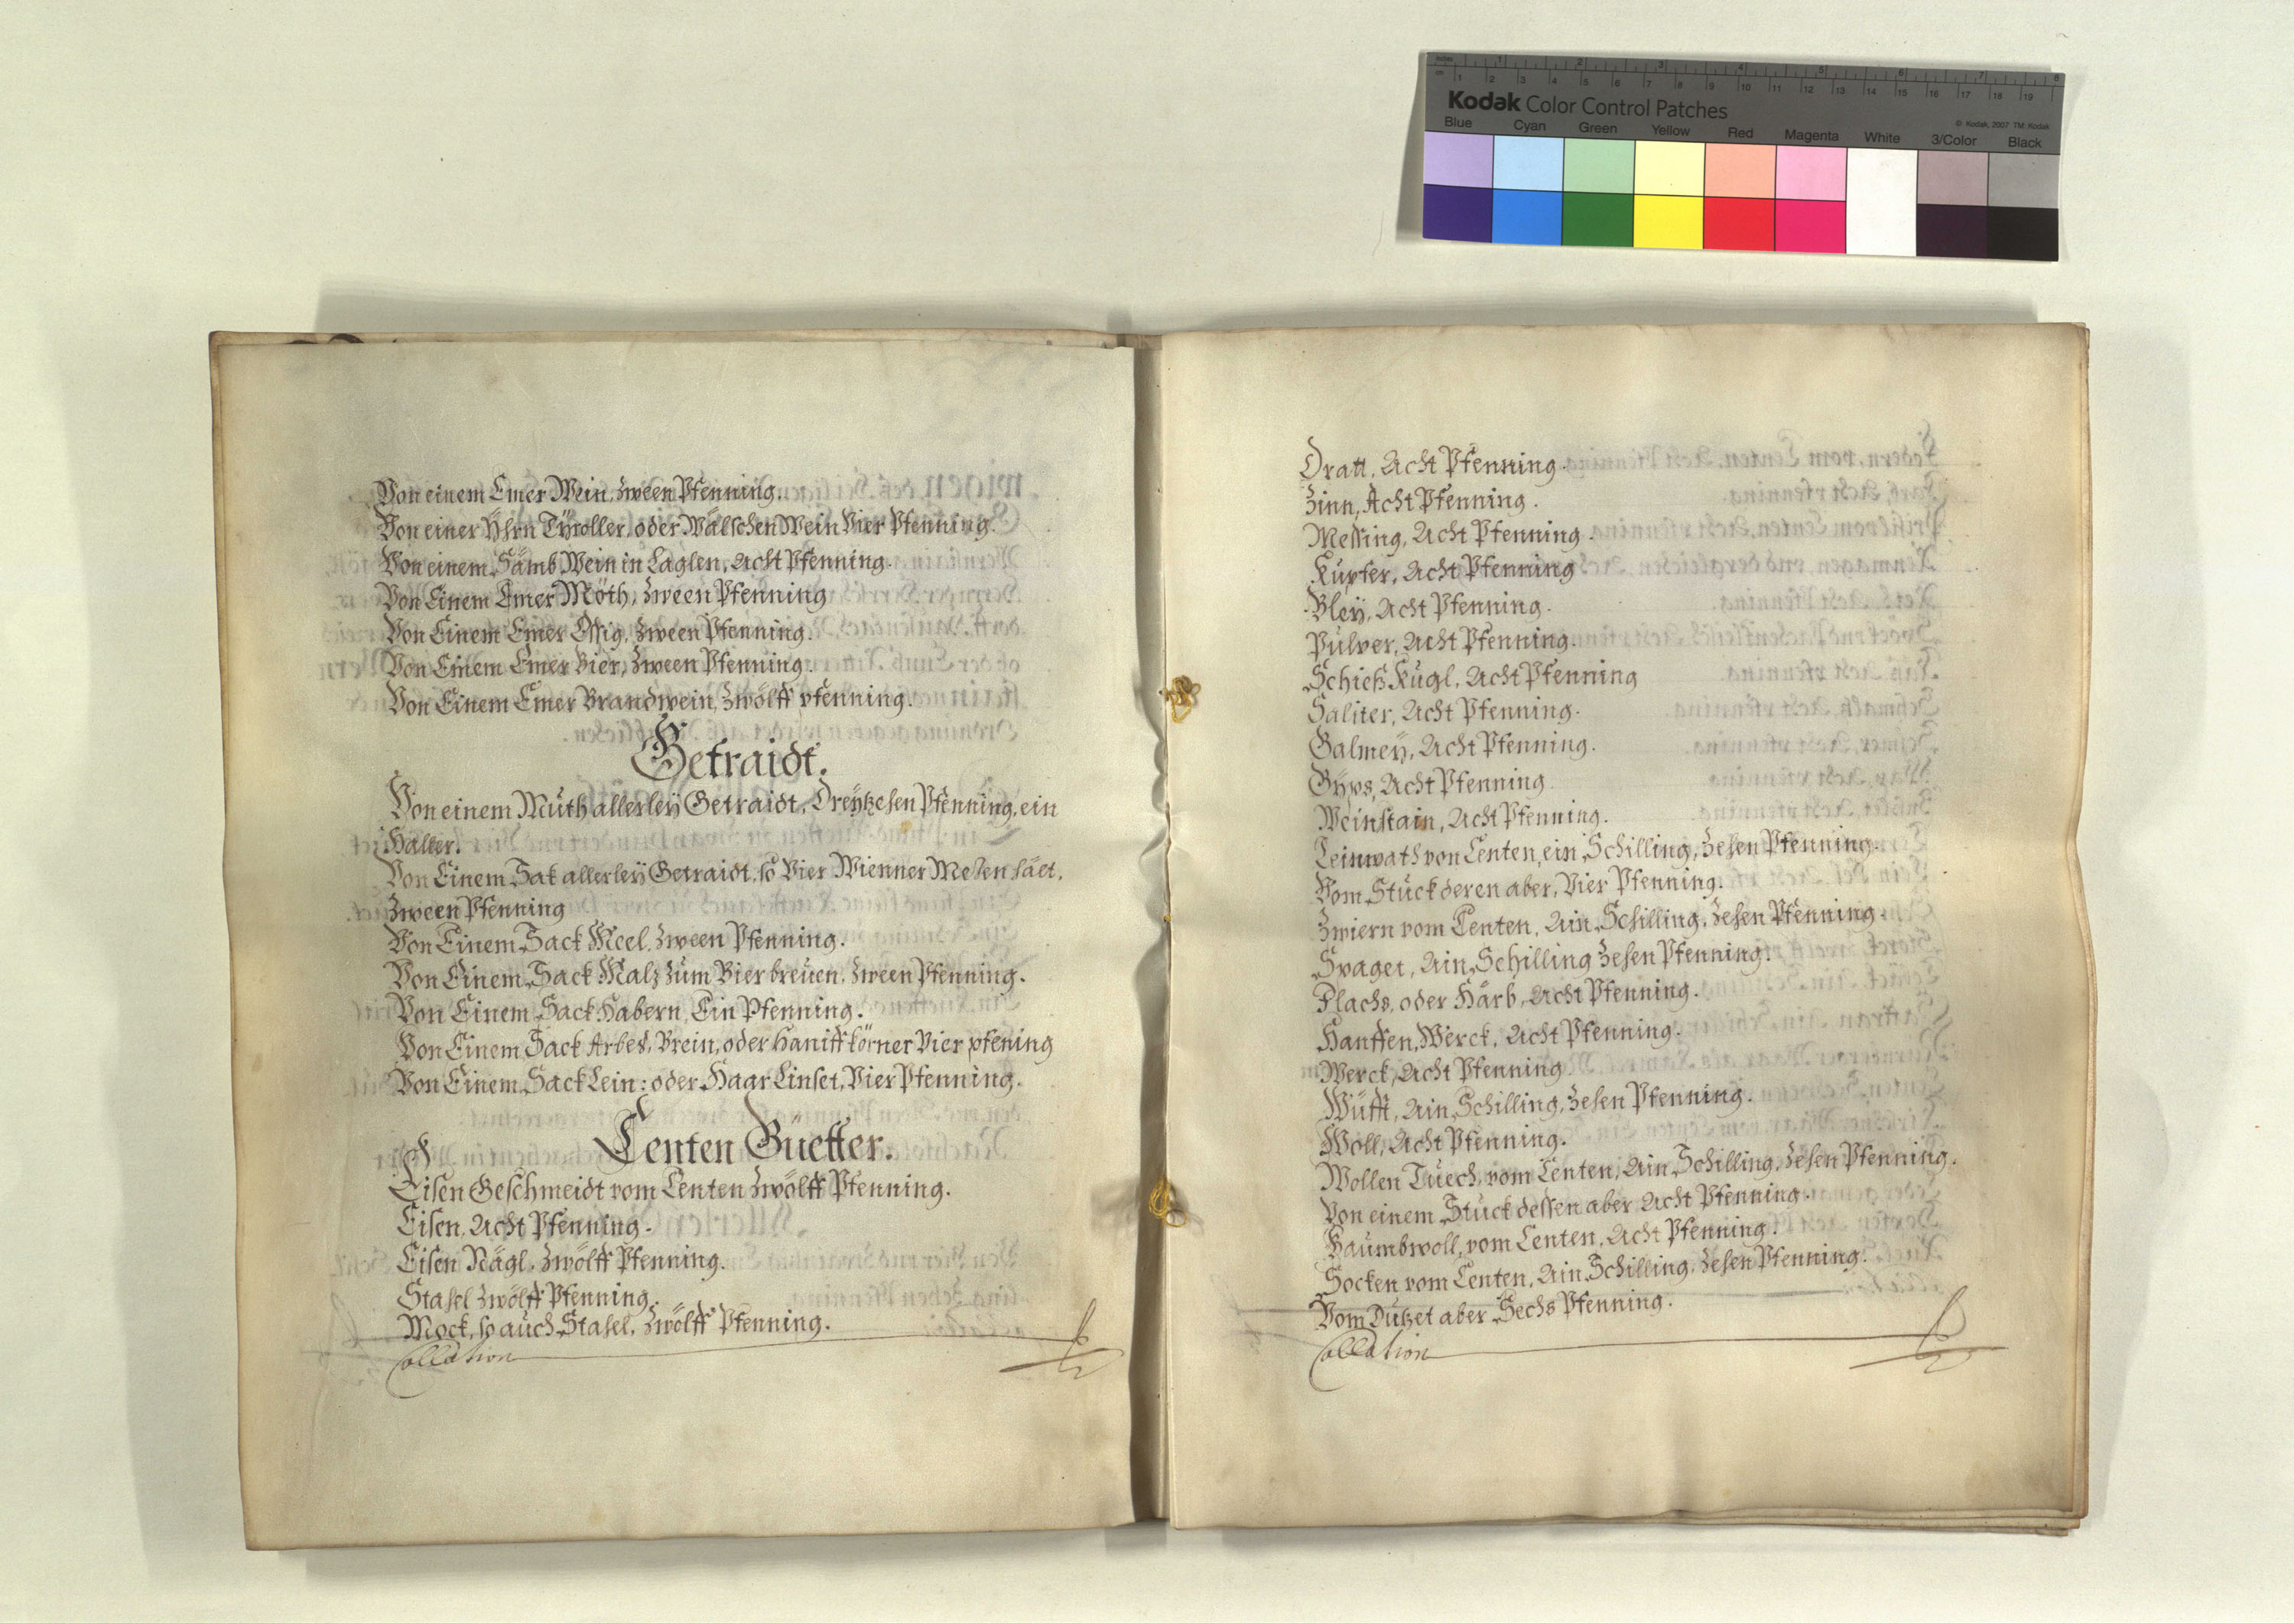 Von einem Emer Wein, zween Pfenning.
Von einer Yhrn Tÿroller, oder Wälschen Wein Vier Pfenning.
Von einem Sämb Wein in Laglen, Acht Pfenning.
Von Einem Emer Möth, zween Pfenning
Von Einem Emer Essig, zween Pfenning.
Von Einem Emer Bier, zween Pfenning.
Von Einem Emer Brandwein, zwölff pfenning.
Getraidt.
Von einem Muth allerleÿ Getraidt, Dreÿtzehen Pfenning, ein
Haller.
Von Einem Sak allerleÿ Getraidt, so Vier Wienner Metzen hält,
zween Pfenning
Von Einem Sack Meel, zween Pfenning.
Von Einem Sack Malz zum Bier breuen, zween Pfenning.
Von Einem Sack Habern, Ein Pfenning.
Von Einem Sack Arbes, Brein, oder Haniffkörner Vier pfening
Von Einem Sack Lein: oder Haar Linset, Vier Pfenning.
Centen Güetter.
Eisen Geschmeidt vom Centen Zwölff Pfenning.
Eisen, Acht Pfenning.
Eisen Nägl, Zwölff Pfenning.
Stahel Zwölff Pfenning.
Mock, so auch Stahel, Zwölff Pfenning.
Collation
Kodak Color Control Patches
© Kodak, 2007 TM: Kodak
Blue Cyan Green Yellow Red Magenta White 3/Color Black
Dratt, Acht Pfenning.
Zinn, Acht Pfenning.
Messing, Acht Pfenning.
Kupfer, Acht Pfenning
Bleÿ, Acht Pfenning.
Pulver, Acht Pfenning.
Schieß Kugl, Acht Pfenning
Saliter, Acht Pfenning.
Galmeÿ, Acht Pfenning.
Gÿps, Acht Pfenning
Weinstain, Acht Pfenning.
Leinwath von Centen, ein Schilling, Zehen Pfenning.
Vom Stuck deren aber, Vier Pfenning.
Zwiern vom Centen, Ain Schilling, Zehen Pfenning.
Spaget, Ain Schilling Zehen Pfenning.
Flachs, oder Härb, Acht Pfenning.
Hanffen, Werck, Acht Pfenning.
Werck, Acht Pfenning
Wüfft, Ain Schilling, Zehen Pfenning.
Woll, Acht Pfenning.
Wollen Tuech, vom Centen, Ain Schilling, Zehen Pfenning.
Von einem Stuck dessen aber Acht Pfenning.
Baumbwoll, vom Centen, Acht Pfenning.
Socken vom Centen, Ain Schilling, Zehen Pfenning.
Vom Dutzet aber Sechs Pfenning.
Collation